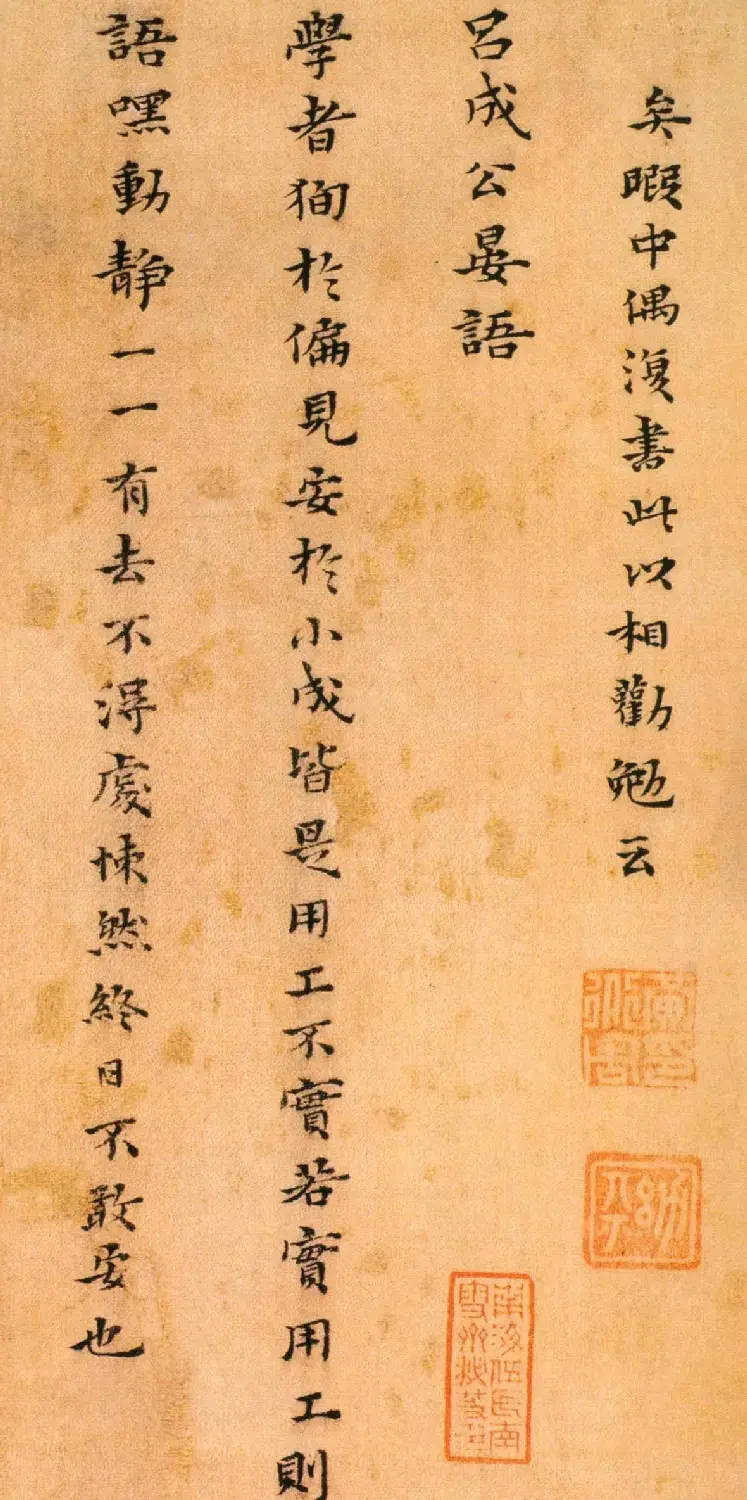 矣暇中偶復書此以相勸勉云
呂成公晏語
學者狥於偏見安於小成皆是用工不實若實用工則
語嘿動靜一一有去不得處悚然終日不敢安也
幼平